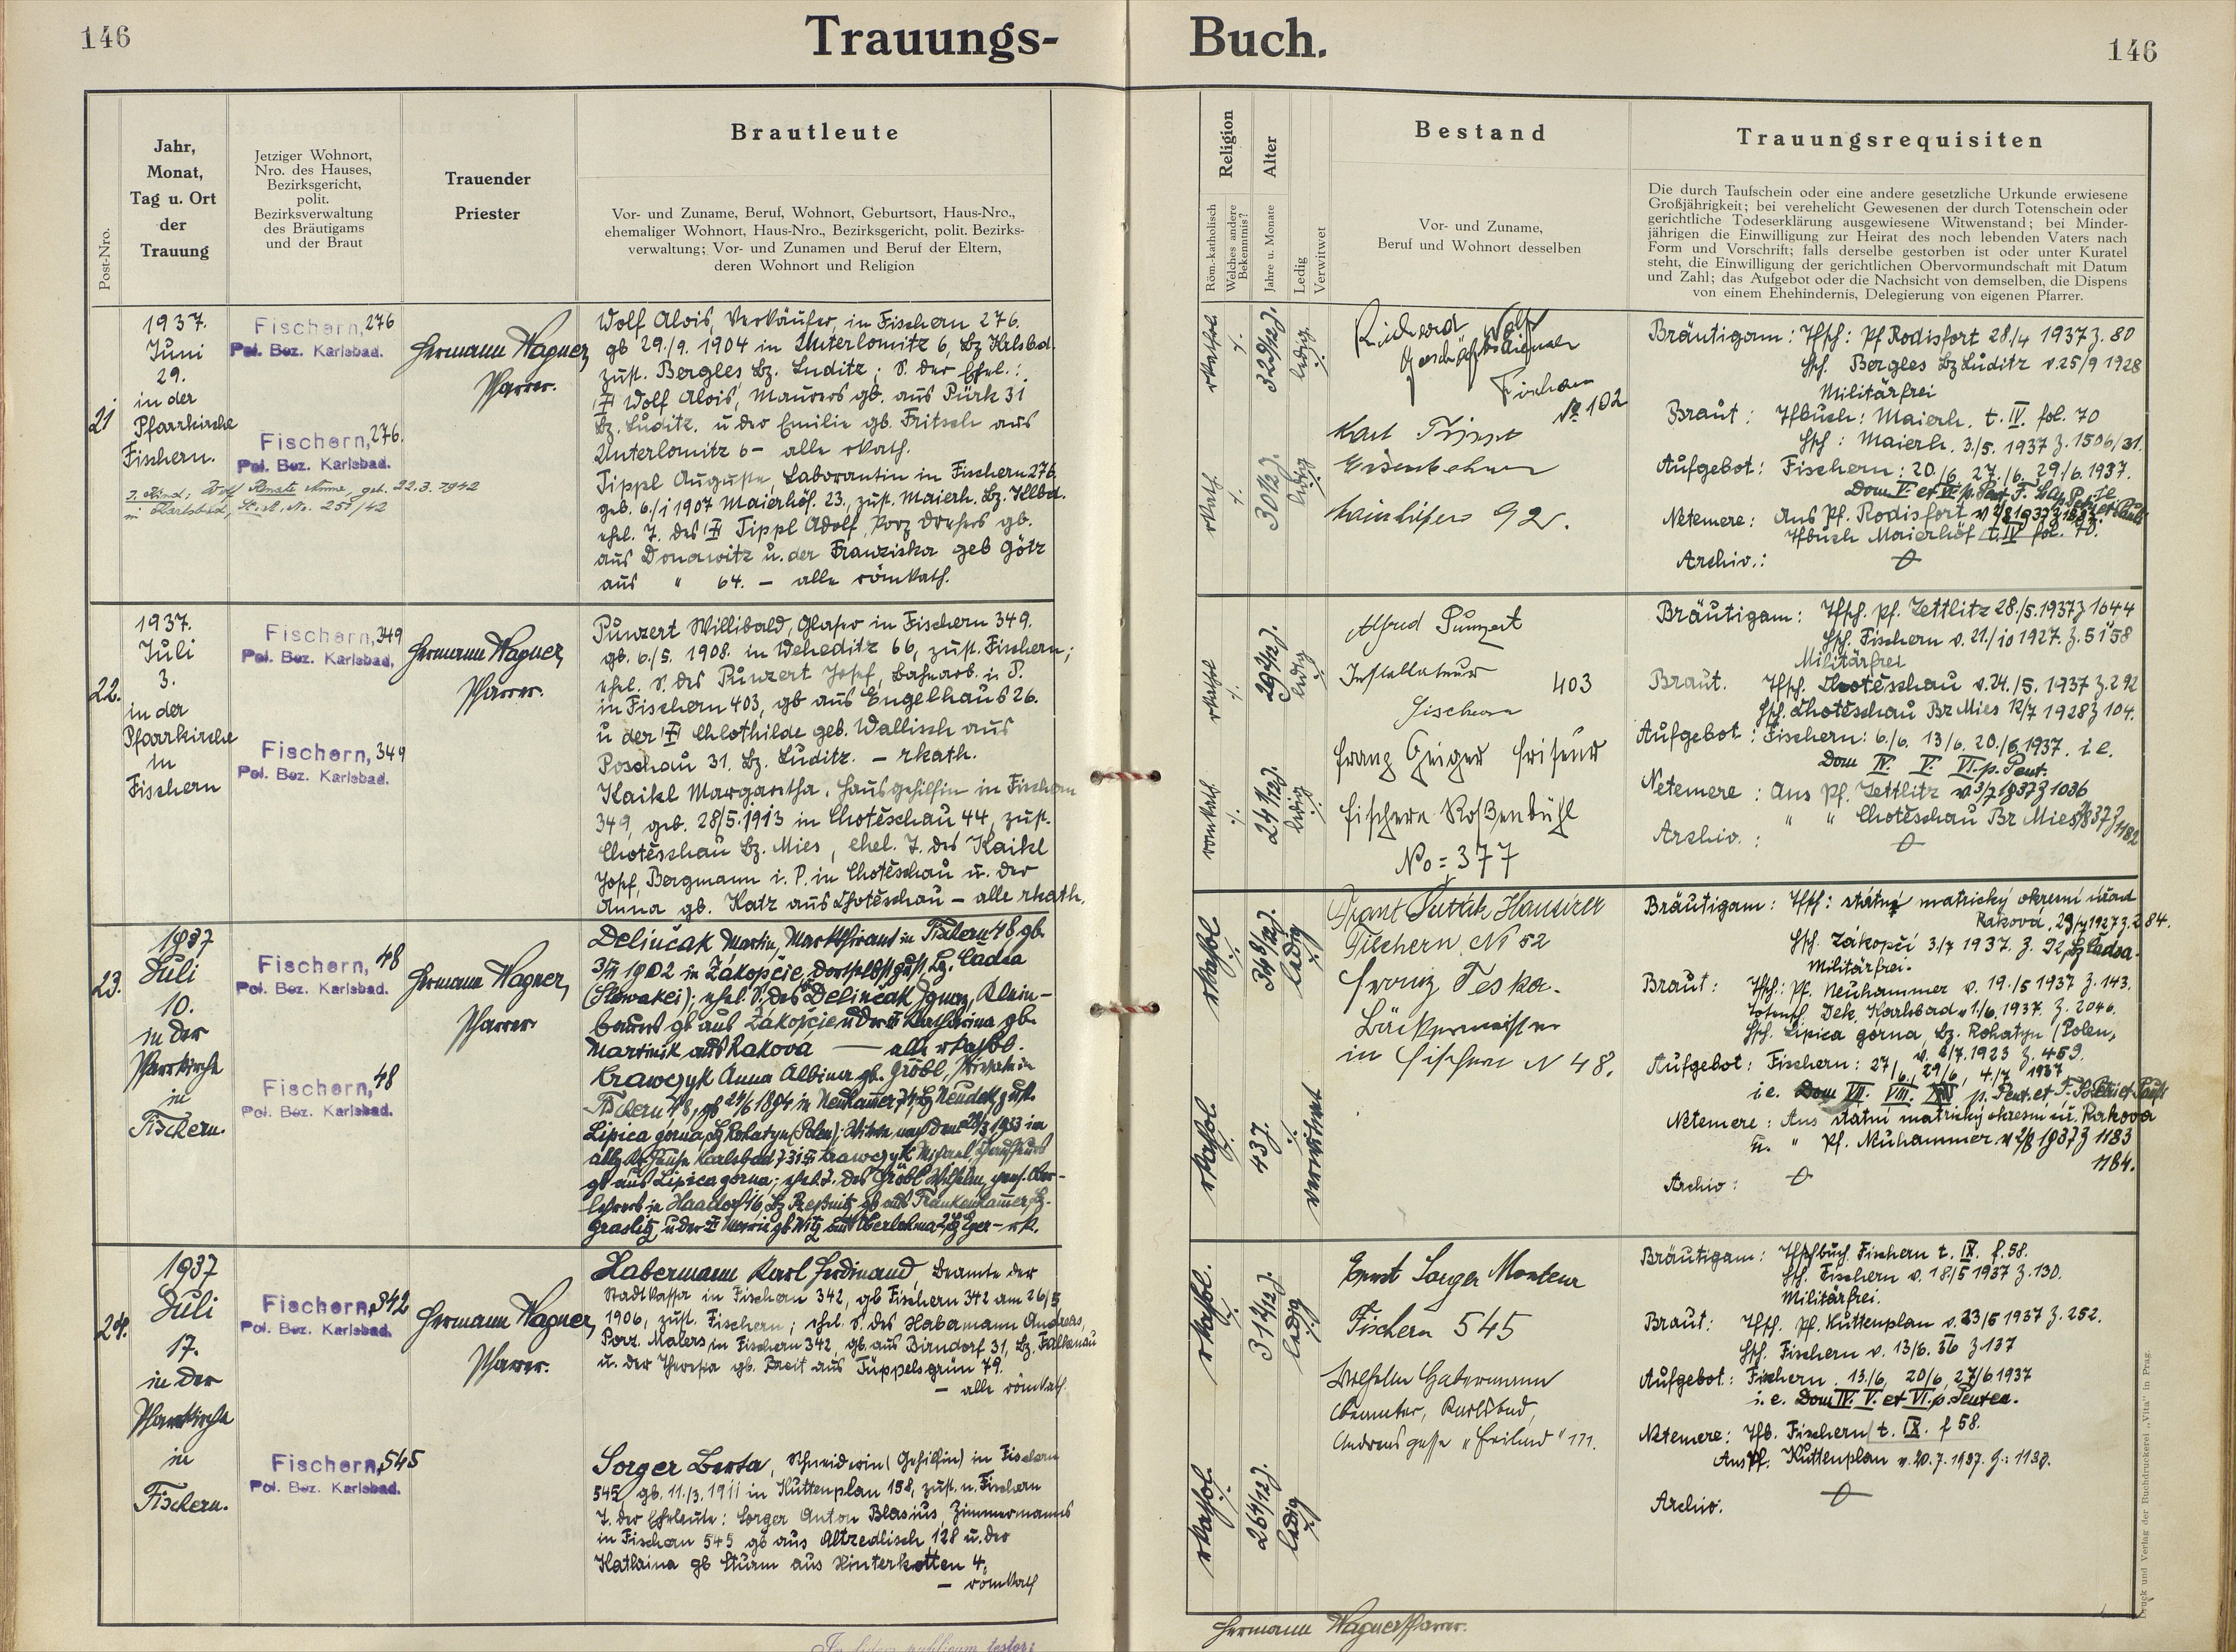 146
Trauungs-
Buch.
146
Post-Nro.
Jahr,
Monat,
Tag u. Ort
der
Trauung
Jetziger Wohnort,
Nro. des Hauses,
Bezirksgericht,
polit.
Bezirksverwaltung
des Bräutigams
und der Braut
Trauender
Priester
Brautleute
Vor- und Zuname, Beruf, Wohnort, Geburtsort, Haus-Nro.,
ehemaliger Wohnort, Haus-Nro., Bezirksgericht, polit. Bezirks-
verwaltung; Vor- und Zunamen und Beruf der Eltern,
deren Wohnort und Religion
Religion
Röm.-katholisch
Welches andere
Bekenntnis?
Alter
Jahre u. Monate
Ledig
Verwitwet
Bestand
Vor- und Zuname,
Beruf und Wohnort desselben
Trauungsrequisiten
Die durch Taufschein oder eine andere gesetzliche Urkunde erwiesene
Großjährigkeit; bei verehelicht Gewesenen der durch Totenschein oder
gerichtliche Todeserklärung ausgewiesene Witwenstand; bei Minder-
jährigen die Einwilligung zur Heirat des noch lebenden Vaters nach
Form und Vorschrift; falls derselbe gestorben ist oder unter Kuratel
steht, die Einwilligung der gerichtlichen Obervormundschaft mit Datum
und Zahl; das Aufgebot oder die Nachsicht von demselben, die Dispens
von einem Ehehindernis, Delegierung von eigenen Pfarrer.
21
1937.
Juni
29.
in der
Pfarrkirche
Fischern.
Fischern, 276
Pol. Bez. Karlsbad.
Fischern, 276.
Pol. Bez. Karlsbad.
geb. 22.3.1942
in Karlsbad, St. A. Nr. 255/42
Hermann Wagner,
Pfarrer.
Wolf Alois, Verkäufer, in Fischern 276.
gb 29./9. 1904 in Unterlomitz 6, Bz Karlsbd.
zust. Bergles Bz. Luditz; S. der Ehel.:
Wolf Alois, Maurers gb. aus Pürk 31
Bz. Luditz. u der Emilie gb. Fritsch aus
Unterlomitz 6 - alle rkath.
Tippl Auguste, Laborantin in Fischern 276.
geb. 6./1 1907 Maierhöf. 23, zust. Maierh. Bz.
ehel. T. des Tippl Adolf, Porz drehers gb.
aus Donawitz u. der Franziska geb Götz
aus " 64. - alle römkath.
rkathol.
32 9/12 J.
ledig
rkath.
ledig
Richard Wolf
Fischern
№ 102
Karl
92.
Bräutigam: Tfsch: Pf Rodisfort 28/4 1937 z. 80
Hsch. Bergles Bz Luditz v. 25/9 1928
Militärfrei
Braut: Tfbuch: Maierh. t. IV. fol. 70
Hsch: Maierh. 3/5. 1937 z. 1506/31.
Aufgebot: Fischern: 20./6. 27./6. 29/6. 1937.
Netemere: Aus Pf. Rodisfort
Tfbuch Maierhöf t. IV fol. 70.
Archiv.:
22.
1937.
Juli
3.
in der
Pfarrkirche
in
Fischern
Fischern, 349
Pol. Bez. Karlsbad.
Fischern, 349
Pol. Bez. Karlsbad.
Hermann Wagner,
Pfarrer.
Punzert Willibald, Glaser in Fischern 349.
gb. 6./5. 1908. in Weheditz 66, zust. Fischern;
ehel. S. des Punzert Josef, Bahnarb. i. P.
in Fischern 403, gb aus Engelhaus 26.
u der Chlothilde geb. Wallisch aus
Poschau 31. Bz. Luditz. - rkath.
Kaikl Margaretha, Hausgehilfin in Fischern
349, geb. 28/5. 1913 in Chotěschau 44, zust.
Chotěschau Bz. Mies, ehel. T. des Kaikl
Josef, Bergmann i. P. in Chotěschau u. der
Anna gb. Katz aus Chotěschau - alle rkath.
ledig
24 1/12 J.
ledig
Alfred Punzert
Installateur
403
Fischern
Franz Geiger Friseur
Fischern Roßenbühl
No = 377
Bräutigam: Tfsch. Pf. Zettlitz 28./5. 1937 z 1044
Hsch. Fischern v. 21./10 1927. z. 5158
Militärfrei
Braut. Tfsch. Chotěschau v. 24./5. 1937 z. 292
Hsch. Chotěschau Bz Mies 12/7 1928 z 104.
Aufgebot: Fischern: 6./6. 13/6. 20./6 1937. i. e.
Dom IV. V. VI. p. Pent.
Netemere: Aus Pf. Zettlitz v. 3/7 1937 z 1036
" " Chotěschau Bz Mies
Archiv.:
23.
1937
Juli
10.
in der
Pfarrkirche
in
Fischern.
Fischern, 48
Pol. Bez. Karlsbad.
Fischern, 48
Pol. Bez. Karlsbad.
Hermann Wagner,
Pfarrer
Delinčak Martin, Marktfierant in Fischern 48 gb.
1902 in Zákopčie, dortselbst zust. Bz. Cadca
(Slowakei); ehel. S. des Delinčak Ignaz, Klein-
bauers gb aus Zákopčie u der Katharina gb.
Martinik aus Rakova — alle rkathol.
Krawczyk Anna Albina gb. Gröbl, Private in
Fischern 48, gb 24/6 1894 in Neuhammer 74, Bz Neudek zust.
Lipica gorna, Bz Rohatyn (Polen); Witwe nach dem 28/3 1933 im
Krawczyk Michael
gb aus Lipica gorna; ehel. T. des Gröbl Wilhelm, pens. Ober-
lehrers in Haadorf 16, Bz Preßnitz, gb aus Frankenhammer, Bz.
Graslitz, u der Marie gb Witz aus Oberlohma 2, Bz Eger - rk.
rkathol
34 8/12 J.
ledig
rkathol.
43 J.
verwitwet
Hausirer
Fischern № 52
Franz Teska.
Bäckermeister
in Fischern N 48.
Bräutigam: Tfsch: státní matrický okresní úřad
Raková, 29/7 1927 z. 284.
Hsch. Zákopčí 3/7 1937. z. 92, Bz Čadca.
Militärfrei.
Braut: Tfsch: Pf. Neuhammer v. 19./5 1937 z. 143.
Totensch. Dek. Karlsbad v 1/6, 1937. z. 2046.
Hsch. Lipica gorna, Bz. Rohatyn (Polen,
1923 z. 459.
Aufgebot: Fischern: 27/6, 29/6, 4/7 1937
Netemere: Aus státní matrický okresní úř. Rakova
u. " Pf. Neuhammer 1937 z 1183
1184.
Archiv:
24.
1937
Juli
17.
in der
Pfarrkirche
in
Fischern.
Fischern, 342
Pol. Bez. Karlsbad.
Fischern, 545
Pol. Bez. Karlsbad.
Hermann Wagner,
Pfarrer.
Habermann Karl Ferdinand, Beamte der
Stadtkassa in Fischern 342, gb Fischern 342 am 26/5
1906, zust. Fischern; ehel. S. des Habermann Andreas,
Porz. Malers in Fischern 342, gb. aus Birndorf 31, Bz. Falkenau
u. der Theresia gb. Breit aus Tüppelsgrün 79.
- alle römkath.
Sorger Berta, Schneiderin (Gehilfin) in Fischern
545, gb. 11./3. 1911 in Kuttenplan 158, zust. n. Fischern
T. der Eheleute: Sorger Anton Blasius, Zimmermanns
in Fischern 545 gb aus Altzedlisch 128 u. der
Kathaina gb Sturm aus Hinterkotten 4.
- römkath
rkathol.
ledig
rkathol.
26 4/12 J.
ledig
Ernst Sorger Monteur
Fischern 545
Wilhelm Habermann
Beamter, Karlsbad,
Andreasgasse "Freilind" 171.
Bräutigam: Tfschbuch Fischern t. IX. f. 58.
Hsch. Fischern v. 18./5 1937 z. 130.
Militärfrei.
Braut: Tfsch. Pf. Kuttenplan v. 23/5 1937 z. 252.
Hsch. Fischern v. 13/6. 36 z. 137
Aufgebot: Fischern. 13./6, 20/6, 27/6 1937
i. e. Dom IV. V. et VI. p. Penten.
Netemere: Tfb. Fischern t. IX. f 58.
Aus Pf. Kuttenplan v. 20. 7. 1937. z.: 1130.
Archiv.
Hermann Wagner Pfarrer.
In fidem publicam testor:
Druck und Verlag der Buchdruckerei „Vita" in Prag.